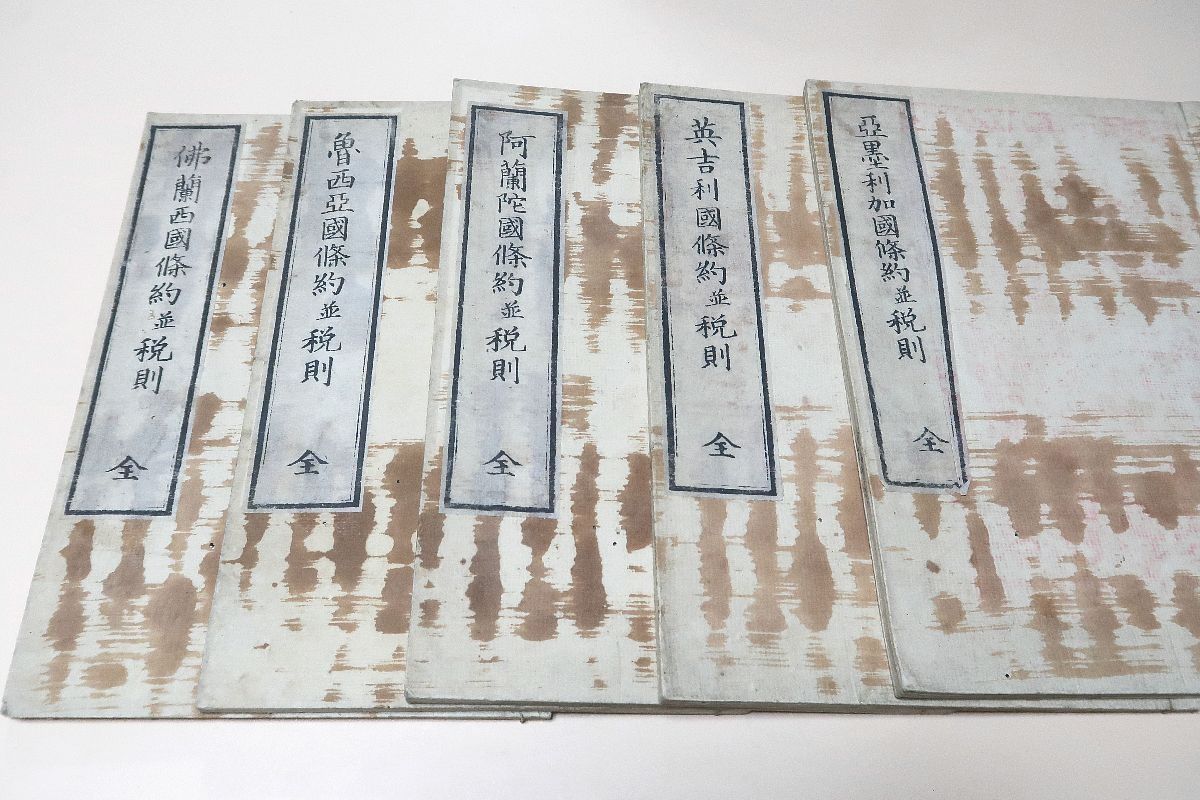 亞墨利加國條約並税則 全
英吉利國條約並税則 全
阿蘭陀國條約並税則 全
魯西亞國條約並税則 全
佛蘭西國條約並税則 全